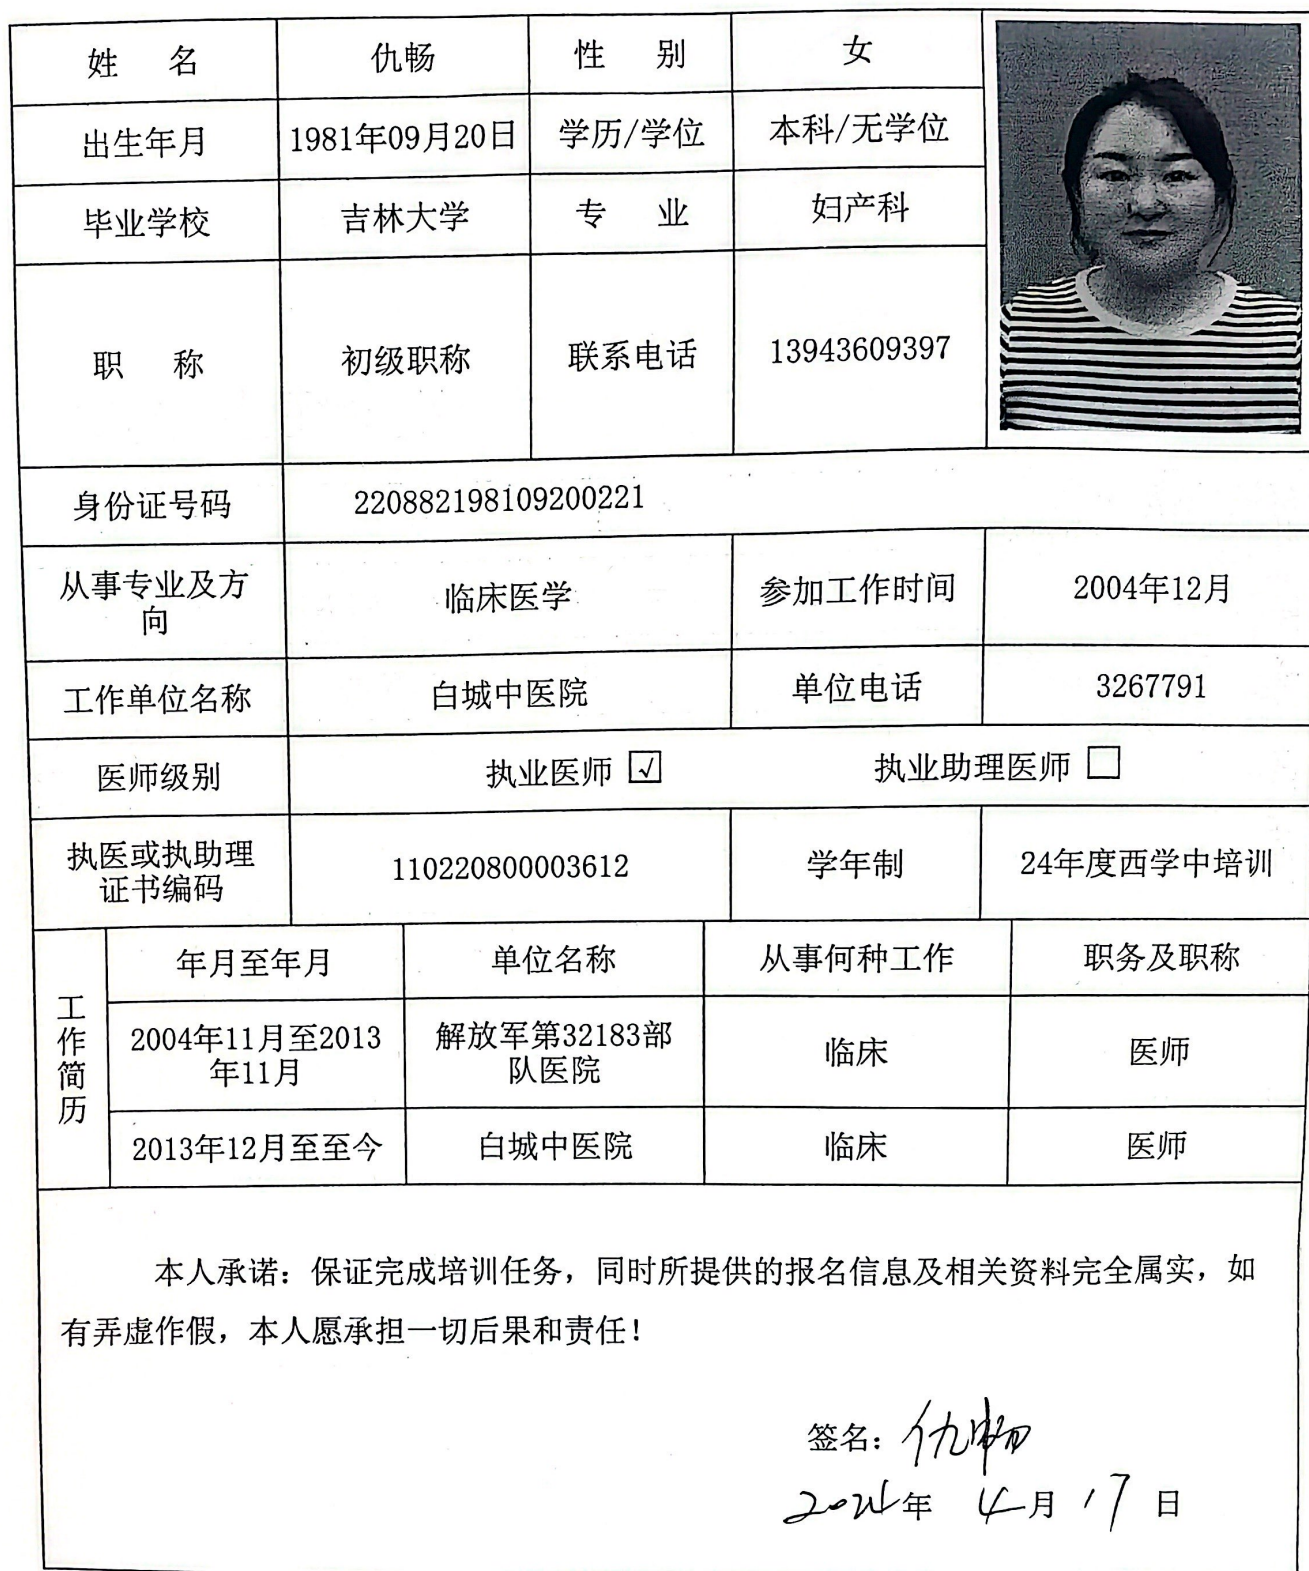 姓 名 仇畅 性 别 女
出生年月 1981年09月20日 学历/学位 本科/无学位
毕业学校 吉林大学 专 业 妇产科
职 称 初级职称 联系电话 13943609397
身份证号码 220882198109200221
从事专业及方
向
临床医学 参加工作时间 2004年12月
工作单位名称 白城中医院 单位电话 3267791
医师级别 执业医师 ☑ 执业助理医师 □
执医或执助理
证书编码
110220800003612 学年制 24年度西学中培训
工作简历
年月至年月 单位名称 从事何种工作 职务及职称
2004年11月至2013
年11月
解放军第32183部
队医院
临床 医师
2013年12月至至今 白城中医院 临床 医师
本人承诺：保证完成培训任务，同时所提供的报名信息及相关资料完全属实，如
有弄虚作假，本人愿承担一切后果和责任！
签名：仇畅
2024年 4月 17日